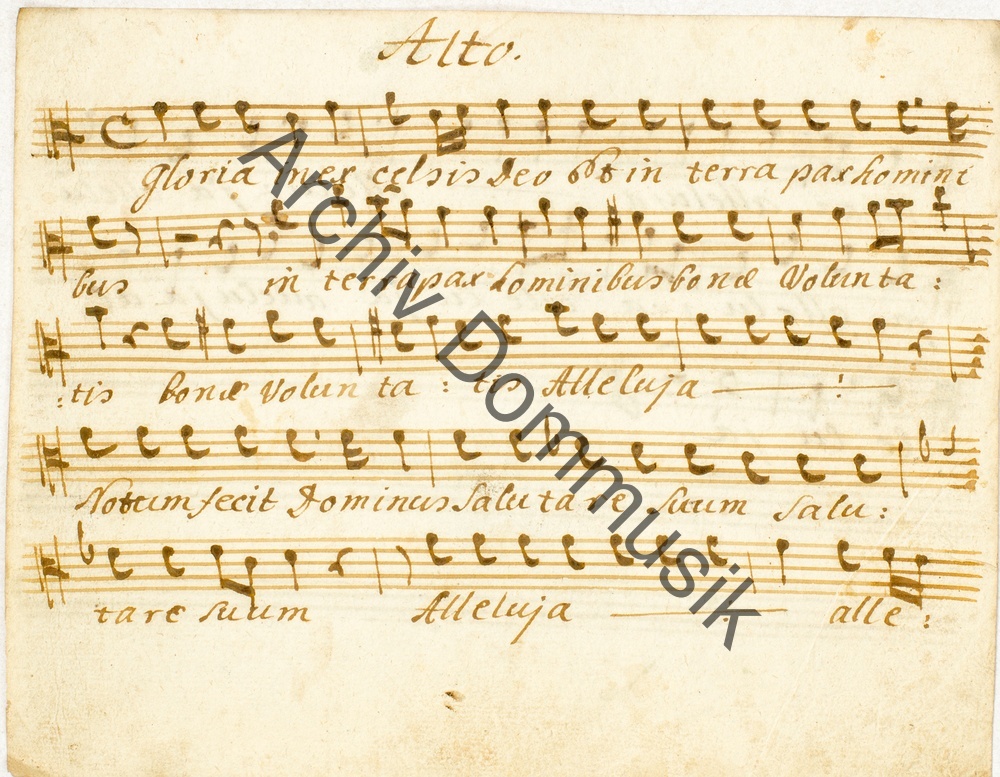 Alto.
Gloria inex celsis Deo Et in terra pax homini
bus in terra pax hominibus bonæ Volunta :
:tis bonæ Volun ta : tis Alleluja — : —
Notum fecit Dominus Saluta re suum Salu :
tare suum Alleluja — : — alle :
Archiv Dommusik